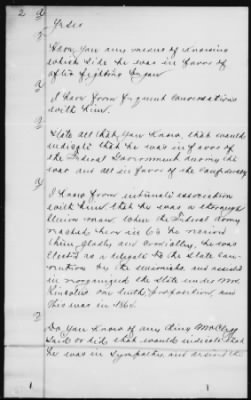 2 Q
Yes sir
Q
Have you any means of knowing
which side he was in favor of
after fighting began
A
I have from frequent conversations
with him.
Q
State all that you know that would
indicate that he was in favor of
the Federal Government during the
war and all in favor of the Confederacy
A
I know from intimate association
with him that he was a thorough
Union man. When the Federal Army
reached here in 63 he received
them gladly and cordially, he was
elected as a delegate to the State Con-
vention by the Unionists and assisted
in reorganizing the state under Mr.
Lincolns one tenth proposition, and
this was in 1864.
Q
Do you know of any thing McClogg
said or did that would indicate that
he was in sympathy and the
1 1